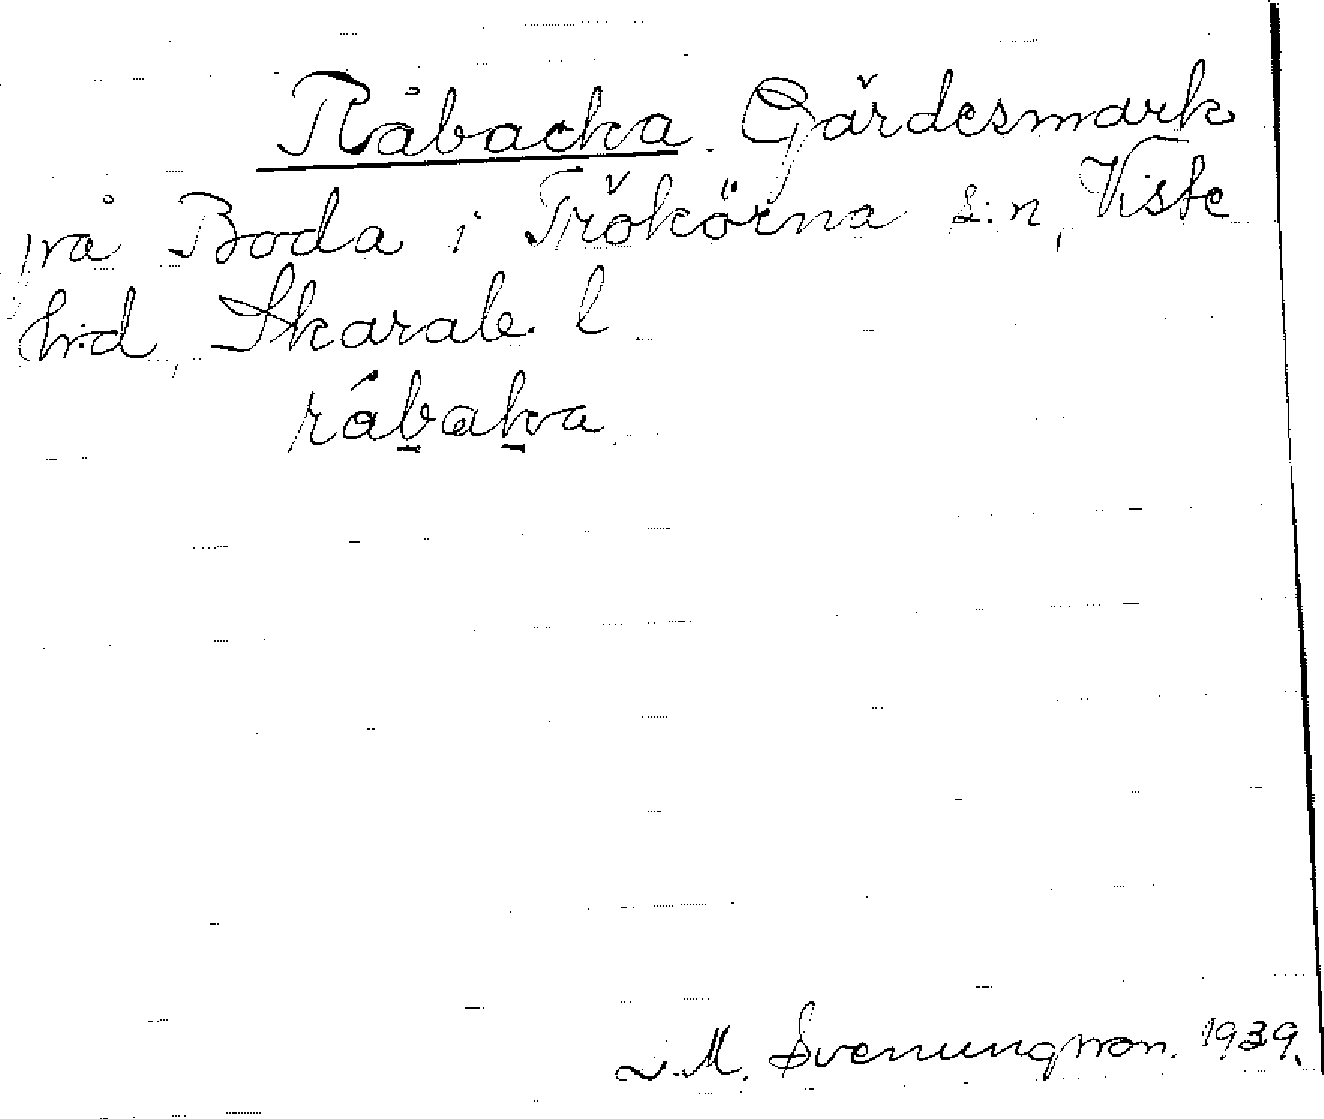 Råbacka. Gärdesmark
på Boda i Trökörna s:n, Viste
h:d, Skarab. l
råbaka
M. Svenungsson. 1939.